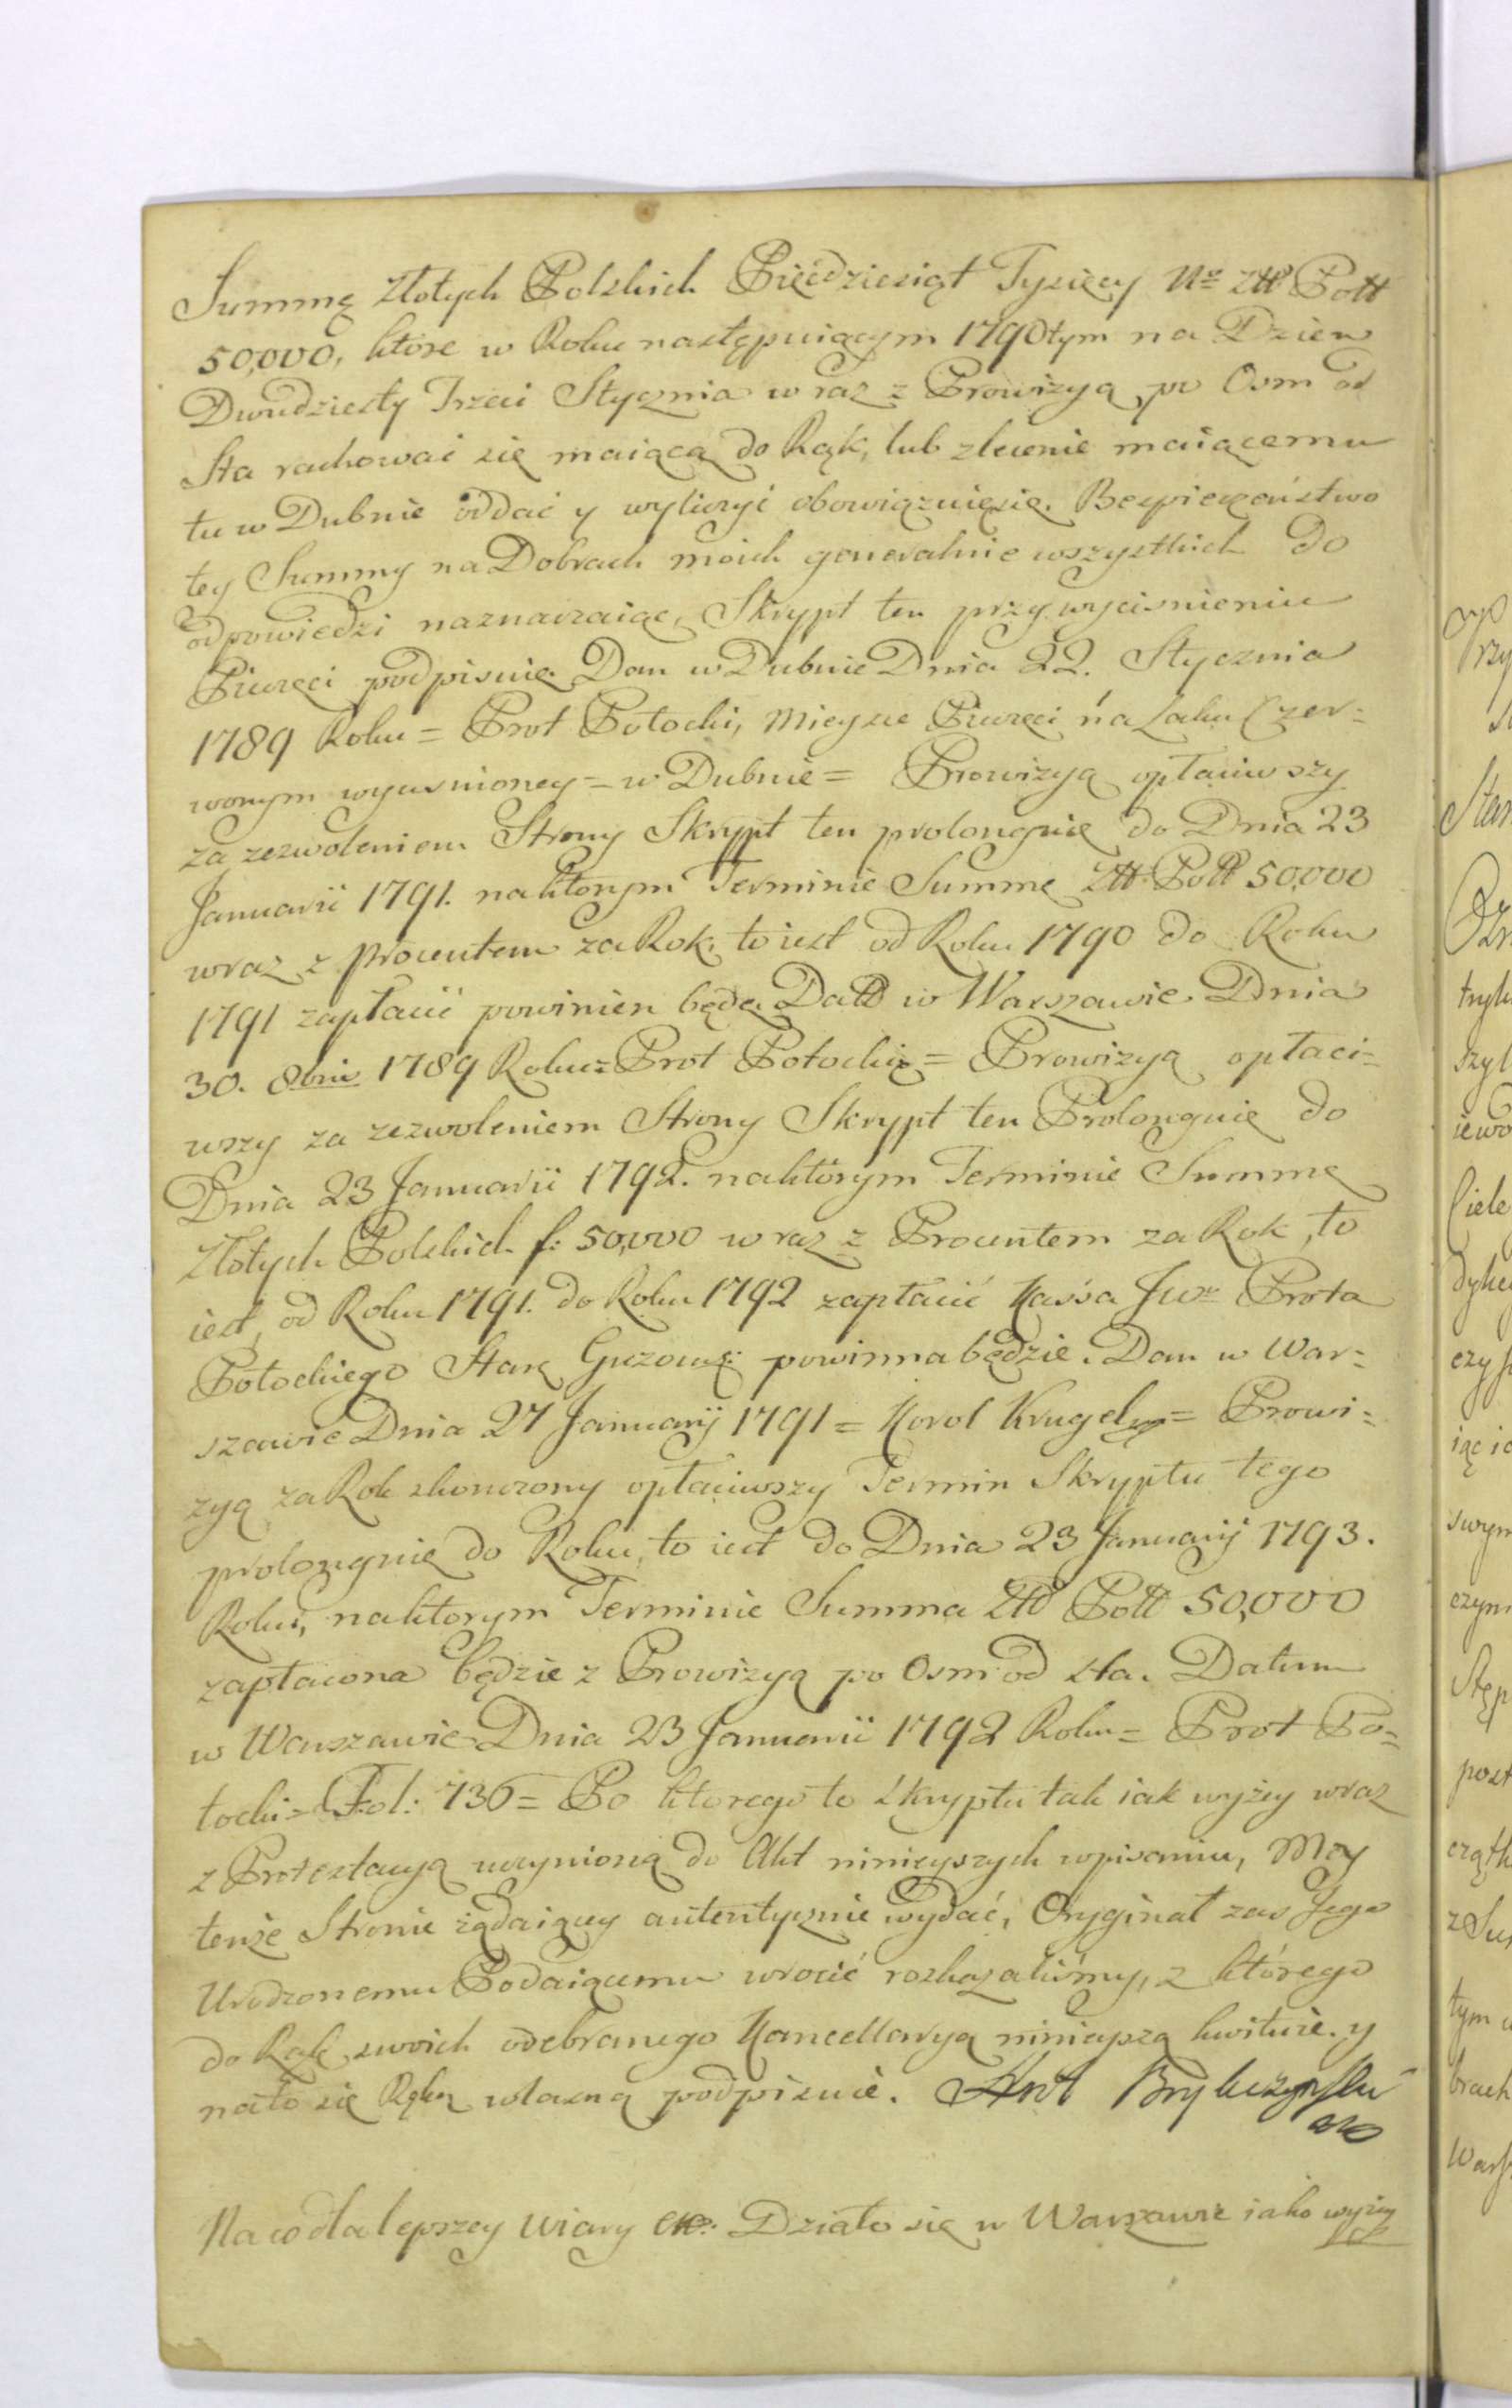 Summę Złotych Polskich Pięćdziesiąt Tysięcy No Złł Poll
50,000, ktore w Roku następuiącym 1790tym na Dzien
Dwudziesty Trzeci Stycznia wraz z Prowizyą po Osm od
Sta rachować się maiącą do Rąk, lub zlecenie maiącemu
tu w Dubnie oddać y wyliczyć obowiązuięsię. Bezpieczeństwo
tey Summy na Dobrach moich generalnie wszystkich do
odpowiedzi naznaczaiąc, Skrypt ten przy wyciśnieniu
Pieczęci podpisuię. Dan w Dubnie Dnia 22. Stycznia
1789 Roku = Prot Potocki, Mieysce Pieczęci na Laku Czer=
wonym wycisnioney = w Dubnie = Prowizyą opłaciwszy
za zezwoleniem Strony Skrypt ten prolonguię do Dnia 23
Januarii 1791. na ktorym Terminie Summę Złł Poll 50,000
wraz z Procentem za Rok, to iest od Roku 1790 do Roku
1791 zapłacić powinien będę. Datt w Warszawie Dnia
30. 8bris 1789 Roku = Prot Potocki = Prowizyą opłaci=
wszy za zezwoleniem Strony Skrypt ten Prolonguię do
Dnia 23 Januarii 1792. na ktorym Terminie Summę
Złotych Polskich f: 50,000 wraz z Procentem za Rok, to
iest, od Roku 1791. do Roku 1792 zapłacić Kassa Jwo Prota
Potockiego Starę Guzows: powinna będzie. Dan w War=
szawie Dnia 27 Januarij 1791 = Karol Krugel = Prowi=
zyą za Rok skonczony opłaciwszy Termin Skryptu tego
prolonguię do Roku, to iest do Dnia 23 Januarij 1793.
Roku, na ktorym Terminie Summa Złł Poll 50,000
zapłacona będzie z Prowizyą po Osm od sta. Datum
w Warszawie Dnia 23 Januarii 1792 Roku = Prot Po=
tocki = Fol: 736 = Po ktorego to skryptu tak iak wyżey wraz
z Protestacyą uczynioną do Akt ninieyszych wpisaniu, My
tenże Stronie żądaiącey autentycznie wydać, Oryginał zas Jego
Urodzonemu Podaiącemu wrocić rozkazaliśmy, z którego
do Rąk swoich odebranego Kancellaryą ninieyszą kwituie. y
na to się Ręką własną podpisuie.
Na co dla lepszey wiary etc: Działo się w Warszawie iako wyżey